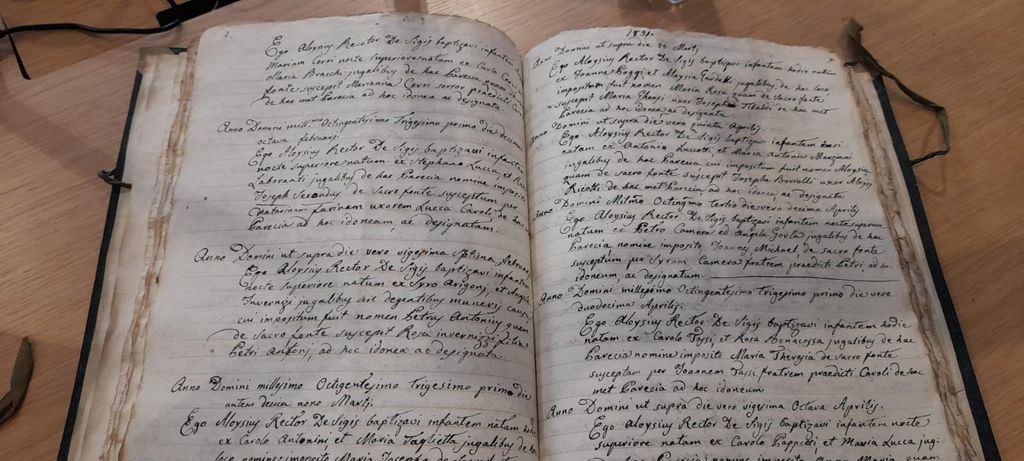 Ego Aloysius Rector De Sigis baptizavi infantem
Mariam Cerri nocte superiore natam ex Carlo Cerri
Maria Bracchi jugalibus de hac Parecia quam
fonte suscepit Marianna Cerri soror praedicti
de hac met Parecia ad hoc idonea ac designata
Anno Domini mill.mo Octingentesimo Trigesimo primo die decima
octava februarj.
Ego Aloysius Rector De Sigis baptizavi infantem
nocte superiore natum ex Stephano Lucca, et
Laboranti jugalibus de hac Parecia nomine imposito
Joseph Secondus de Sacro fonte susceptum per
Catarinam farinam uxorem Lucca Caroli de hac
Parecia ad hoc idoneam, ac designatam.
Anno Domini ut supra die vero vigesima Septima febru
Ego Aloysius Rector De Sigis baptizavi infantem
Nocte Superiore natum ex Syro Arigoni, et Angela
Invernizi jugalibus hic degentibus muneris causa
cui impositum fuit nomen Petrus Antonius quem
de Sacro fonte suscepit Rosa invernizi filia
Petri Antonj, ad hoc idonea ac designata.
Anno Domini millesimo Octigentesimo Trigesimo primo die
autem decima nono Martj.
Ego Aloysius Rector De Sigis baptizavi infantem natam
ex Carolo Antonini et Maria Taglietta jugalibus de hac
loco nomine imposito Maria Josepha de
1831.
Anno Domini ut supra die 30. Martj
Ego Aloysius Rector De Sigis baptizavi infantem hodie natam
ex Joanne Poggi et Aloysia jugalibus de hac loco
impositum fuit nomen Maria Rosa quam de Sacro fonte
suscepit Maria Ghensi uxor Josephi de hac met
Parecia ad hoc idonea, ac designata
Anno Domini ut supra die vero quinta Aprilis
Ego Aloysius Rector De Sigis baptizavi infantem heri
natam ex Antonio Lucotti et Maria Antonia Marzani
jugalibus de hac Parecia cui impositum fuit nomen Aloysia
quam de Sacro fonte suscepit Josepha uxor Aloysii
Ricotti de hac met Parecia, ad hoc idonea, ac designata
Anno Domini Milmo Octingmo tertio die vero decima Aprilis
Ego Aloysius Rector De Sigis baptizavi infantem nocte superiore
natum ex Petro Camera et Angela jugalibus de hac
Parecia nomine imposito Joannes Michael de sacro fonte
susceptum per Syrum Camera fratrem praedicti Petri, ad hoc
idoneum, ac designatum.
Anno Domini millesimo Octingentesimo Trigesimo primo die vero
duodecima Aprilis.
Ego Aloysius Rector De Sigis baptizavi infantem hodie
natam ex Carolo Tossi, et Rosa Bonacossa jugalibus de hac
Parecia nomine imposito Maria Theresia de Sacro fonte
susceptam per Joannem Tossi fratrem praedicti Caroli de hac
met Parecia ad hoc idoneum.
Anno Domini ut supra die vero vigesima Octava Aprilis.
Ego Aloysius Rector De Sigis baptizavi infantem nocte
superiore natam ex Carolo et Maria Lucca jug:
de hac Parecia nomine imposito Anna Maria quam